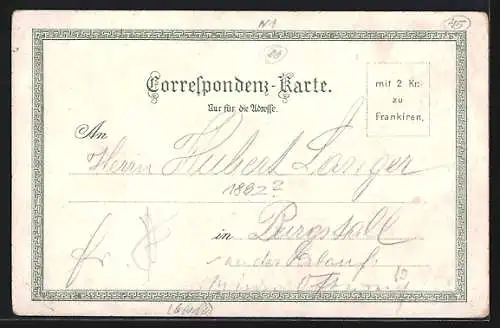 N1
45
20
Correspondenz-Karte.
Nur für die Adresse.
mit 2 Kr.
zu
Frankiren.
An
Herrn Hubert Langer
1892?
in Purgstall
an der Erlauf